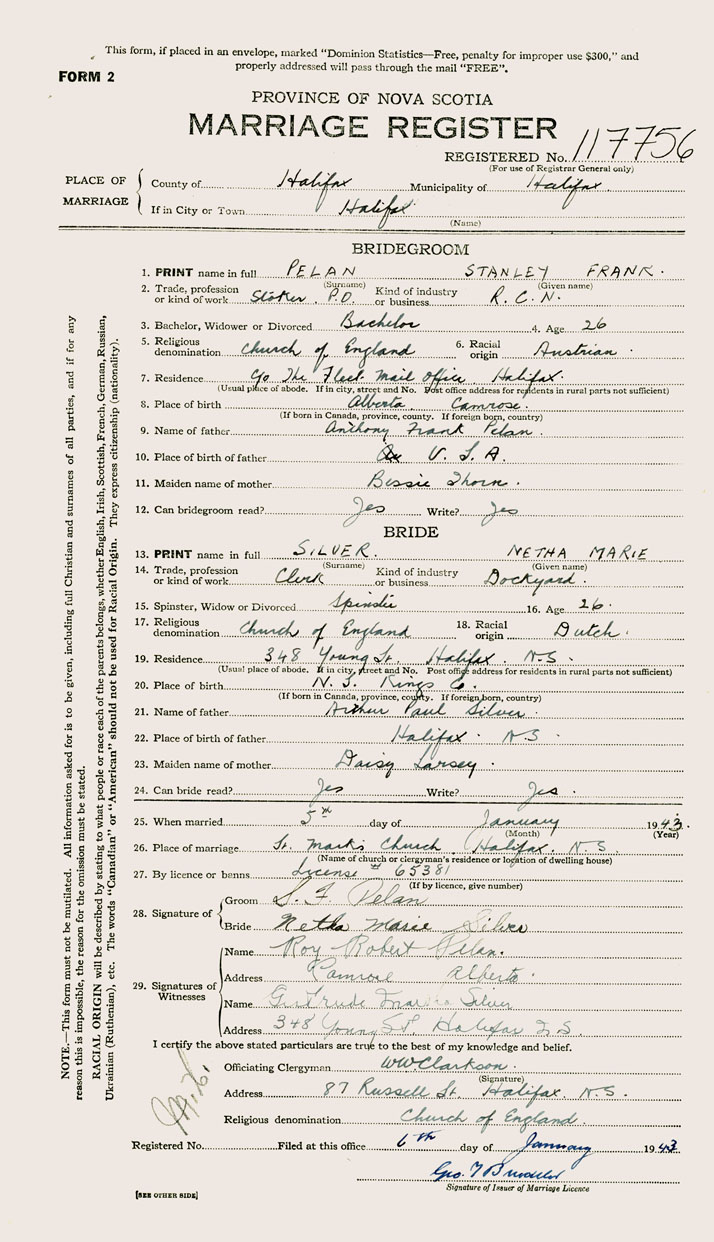 This form, if placed in an envelope, marked "Dominion Statistics—Free, penalty for improper use $300," and
properly addressed will pass through the mail "FREE".
FORM 2
PROVINCE OF NOVA SCOTIA
MARRIAGE REGISTER
REGISTERED No. 117756
(For use of Registrar General only)
PLACE OF MARRIAGE
County of Halifax Municipality of Halifax
If in City or Town Halifax
(Name)
BRIDEGROOM
1. PRINT name in full PELAN STANLEY FRANK.
(Surname) (Given name)
2. Trade, profession or kind of work Stoker P.O. Kind of industry or business R.C.N.
3. Bachelor, Widower or Divorced Bachelor 4. Age 26
5. Religious denomination Church of England 6. Racial origin Austrian.
7. Residence Go The Fleet Mail Office Halifax.
(Usual place of abode. If in city, street and No. Post office address for residents in rural parts not sufficient)
8. Place of birth Alberta Camrose.
(If born in Canada, province, county. If foreign born, country)
9. Name of father Anthony Frank Pelan.
10. Place of birth of father U.S.A.
11. Maiden name of mother Bessie Thorn.
12. Can bridegroom read? Yes Write? Yes
BRIDE
13. PRINT name in full SILVER. NETHA MARIE
(Surname) (Given name)
14. Trade, profession or kind of work Clerk Kind of industry or business Dockyard.
15. Spinster, Widow or Divorced Spinster 16. Age 26.
17. Religious denomination Church of England 18. Racial origin Dutch.
19. Residence 348 Young St. Halifax. N.S.
(Usual place of abode. If in city, street and No. Post office address for residents in rural parts not sufficient)
20. Place of birth N.S. Kings Co.
(If born in Canada, province, county. If foreign born, country)
21. Name of father Arthur Paul Silver.
22. Place of birth of father Halifax. N.S
23. Maiden name of mother Daisy
24. Can bride read? Yes Write? Yes.
25. When married 5th day of January 1943.
(Month) (Year)
26. Place of marriage St. Mark's Church, Halifax, N.S.
(Name of church or clergyman's residence or location of dwelling house)
27. By licence or banns License # 65381
(If by licence, give number)
28. Signature of
Groom S. F. Pelan
Bride Netha Marie Silver
29. Signatures of Witnesses
Name Roy Robert Pelan.
Address Camrose Alberta.
Name Gertrude Silver
Address 348 Young St Halifax N.S.
I certify the above stated particulars are true to the best of my knowledge and belief.
Officiating Clergyman WWClarkson.
(Signature)
Address 87 Russell St. Halifax. N.S.
Religious denomination Church of England.
Registered No. Filed at this office 6th day of January 1943
Geo.
Signature of Issuer of Marriage Licence
[SEE OTHER SIDE]
NOTE.—This form must not be mutilated. All information asked for is to be given, including full Christian and surnames of all parties, and if for any
reason this is impossible, the reason for the omission must be stated.
RACIAL ORIGIN will be described by stating to what people or race each of the parents belongs, whether English, Irish, Scottish, French, German, Russian,
Ukrainian (Ruthenian), etc. The words "Canadian" or "American" should not be used for Racial Origin. They express citizenship (nationality).